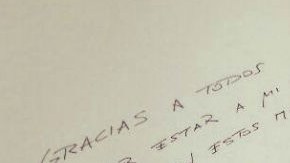 GRACIAS A TODOS
ESTAR A MI
ESTOS